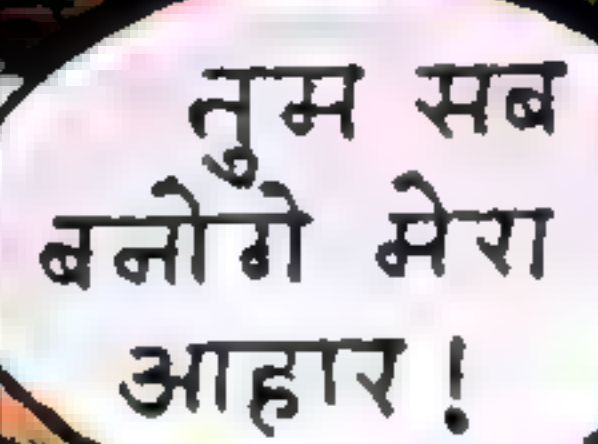 तुम सब
बनोगे मेरा
आहार!